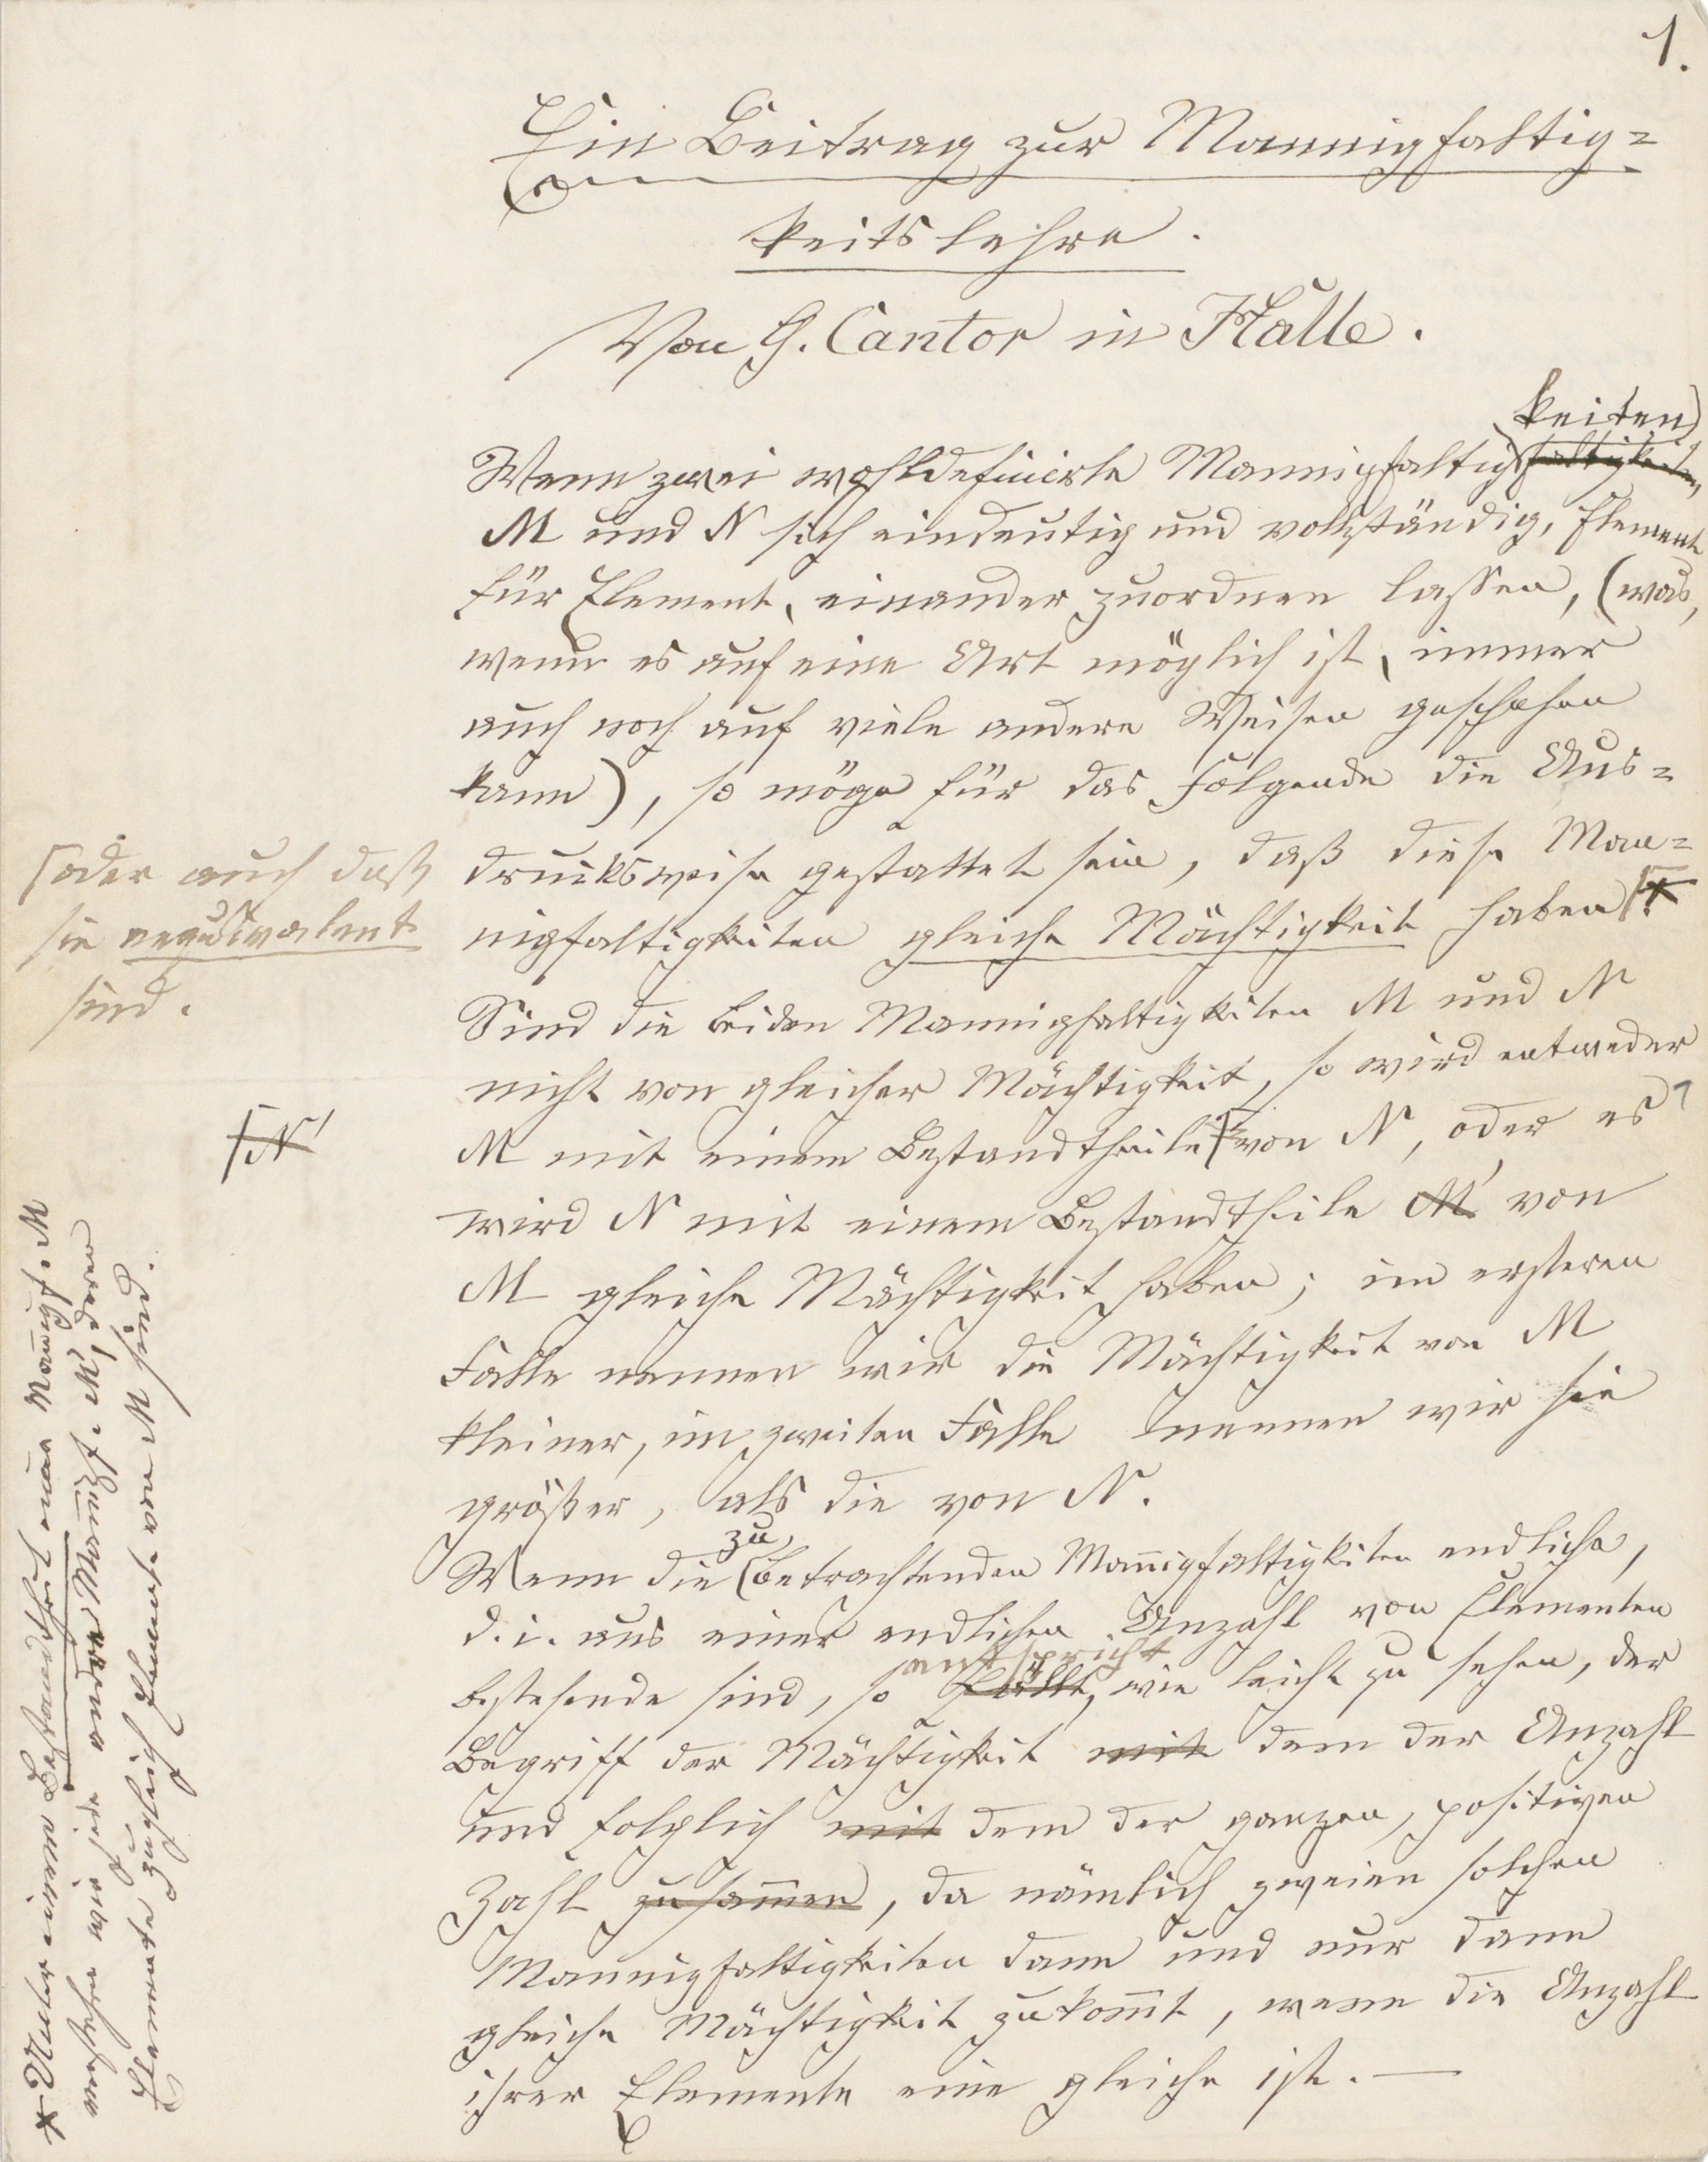 1.
Ein Beitrag zur Mannigfaltig=
keitslehre.
Von G. Cantor in Halle.
keiten
Wenn zwei wohldefinirte Mannigfaltigfaltigkeiten
M und N sich eindeutig und vollständig, Element
für Element, einander zuordnen lassen, (was,
wenn es auf eine Art möglich ist, immer
auch noch auf viele andere Weisen geschehen
kann), so möge für das Folgende die Aus=
drucksweise gestattet sein, daß diese Man=
nigfaltigkeiten gleiche Mächtigkeit haben
oder auch daß
sie aequivalent
sind.
Sind die beiden Mannigfaltigkeiten M und N
nicht von gleicher Mächtigkeit, so wird entweder
M mit einem Bestandtheile von N, oder es
N'
wird N mit einem Bestandtheile M' von
M gleiche Mächtigkeit haben; im ersteren
Falle nennen wir die Mächtigkeit von M
kleiner, im zweiten Falle nennen wir sie
größer, als die von N.
zu
Wenn die betrachtenden Mannigfaltigkeiten endliche,
d. i. aus einer endlichen Anzahl von Elementen
entspricht
bestehende sind, so fällt, wie leicht zu sehen, der
Begriff der Mächtigkeit mit dem der Anzahl
und folglich mit dem der ganzen, positiven
Zahl zusammen, da nämlich zweien solchen
Mannigfaltigkeiten dann und nur dann
gleiche Mächtigkeit zukommt, wenn die Anzahl
ihrer Elemente eine gleiche ist. —
* Unter einem Bestandtheil einer Mannigf. M
verstehen wir jede andere Mannigf. M', deren
Elemente zugleich Elemente von M sind.